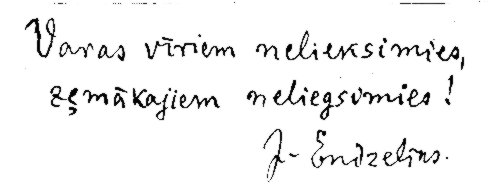 Varas vīriem nelieksimies,
zȩmākajiem neliegsimies!
J. Endzelīns.